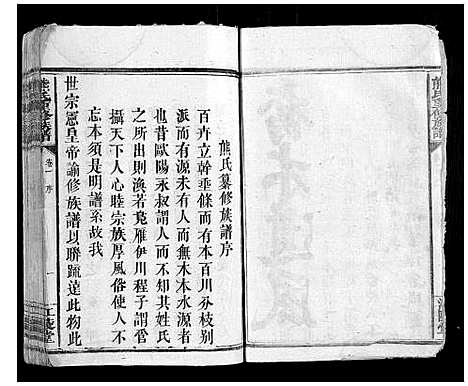 熊氏纂修族譜序
百卉立幹垂條而有本百川分枝別
派而有源未有人而無木本水源者
也昔歐陽永叔謂人而不知其姓氏
之所出則與若鳧雁伊川程子謂管
攝天下人心睦宗族厚風俗使人不
忘本須是明譜系故我
世宗憲皇帝諭修族譜以聯疏遠此物此
熊氏重修族譜
卷一 序
一
江陵堂
熊氏重修族譜